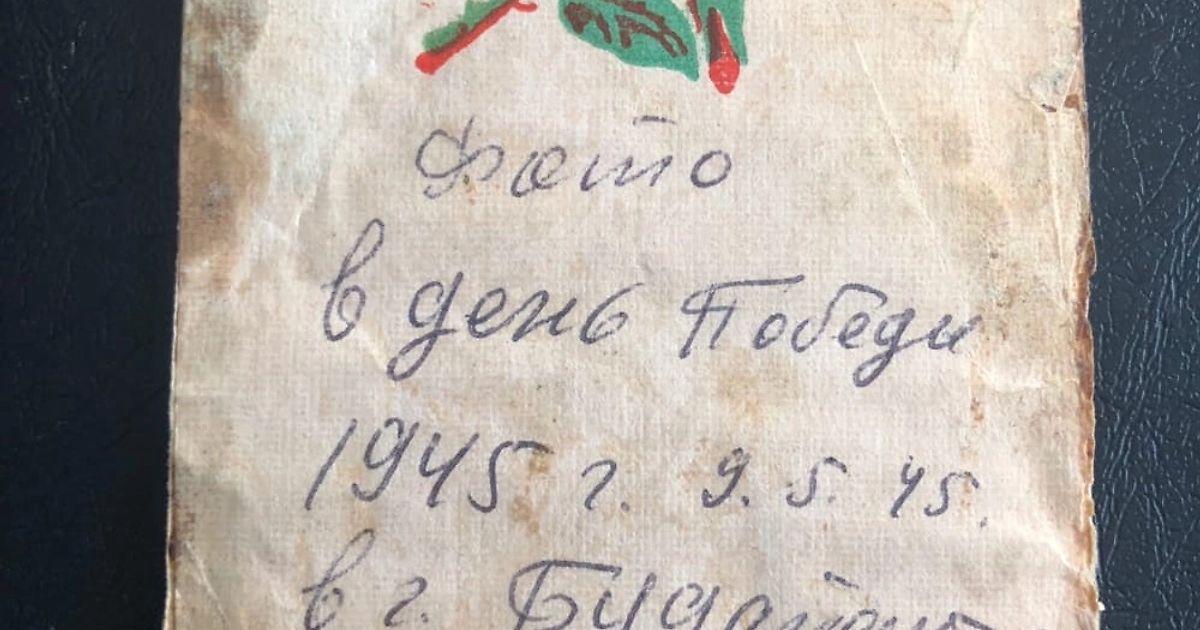 Фото
в день Победи
1945 г. 9. 5. 45.
в г.